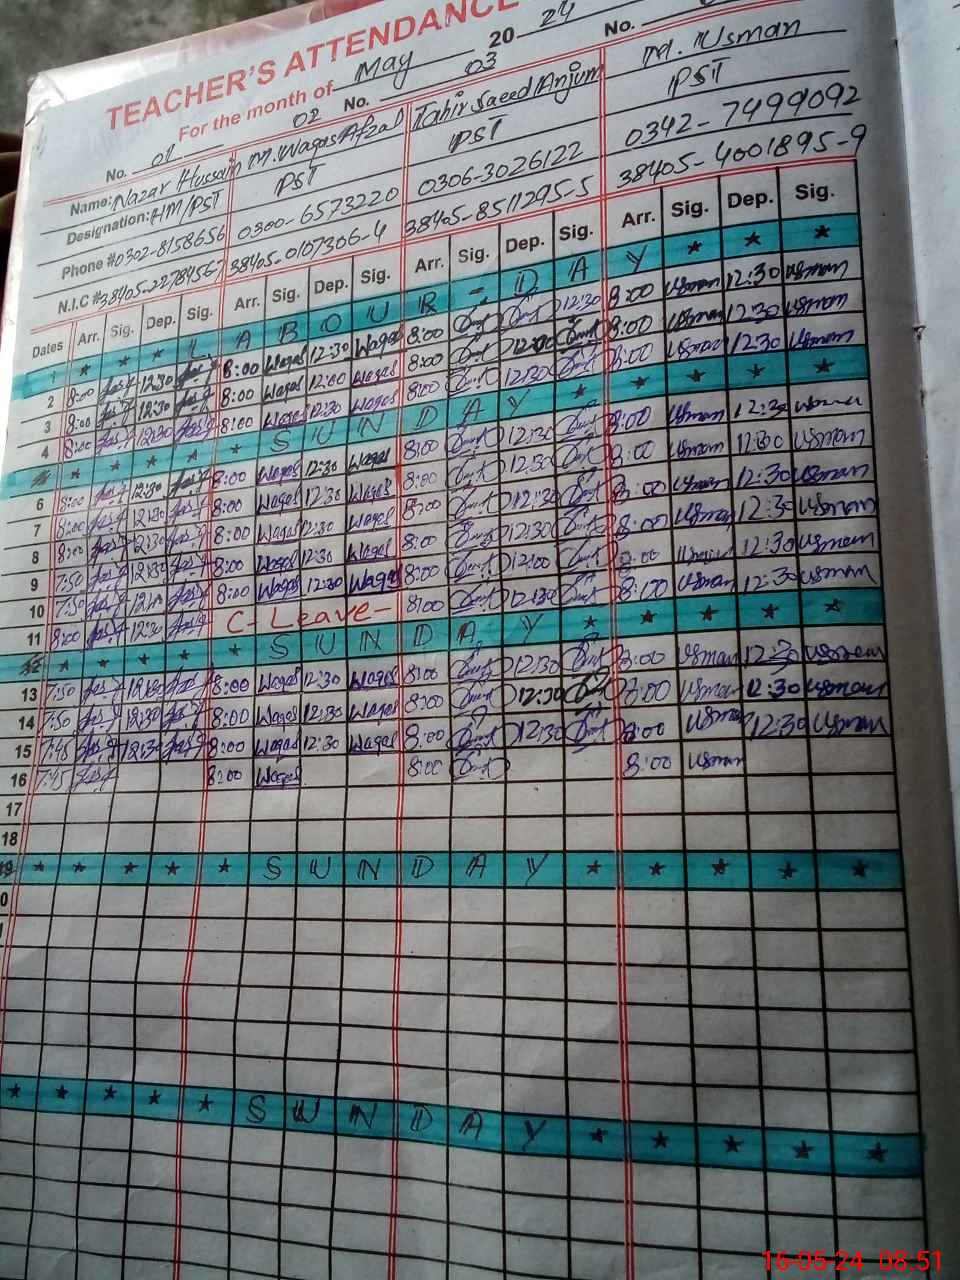 TEACHER'S ATTENDANCE
For the month of May 2024
No. 01 No. 02 No. 03 No.
Name: Nazar Hussain M. Waqas Afzal Tahir Saeed Anjum M. Usman
Designation: HM/PST PST PST PST
Phone #0302-8158656 0300-6573220 0306-3026122 0342-7499092
N.I.C #38405-22784567 38405-0107306-4 38405-8511295-5 38405-4001895-9
Dates Arr. Sig. Dep. Sig. Arr. Sig. Dep. Sig. Arr. Sig. Dep. Sig. Arr. Sig. Dep. Sig.
1 * * * L A B O U R - D A Y * * *
2 8:00 12:30 8:00 Waqas 12:30 Waqas 8:00 12:30 8:00 Usman 12:30 Usman
3 8:00 12:30 8:00 Waqas 12:00 Waqas 8:00 12:00 8:00 Usman 12:30 Usman
4 8:00 12:30 8:00 Waqas 12:30 Waqas 8:00 12:30 8:00 Usman 12:30 Usman
* * * * * S U N D A Y * * * * *
6 8:00 12:30 8:00 Waqas 12:30 Waqas 8:00 12:30 8:00 Usman 12:30 Usman
7 8:00 12:30 8:00 Waqas 12:30 Waqas 8:00 12:30 8:00 Usman Usman
8 8:00 12:30 8:00 Waqas 12:30 Waqas 8:00 12:30 8:00 Usman 12:30 Usman
9 7:50 12:30 8:00 Waqas 12:30 Waqas 8:00 12:30 8:00 Usman 12:30 Usman
10 7:50 8:00 Waqas 12:30 Waqas 8:00 12:00 8:00 Usman 12:30 Usman
11 8:00 12:30 C-Leave- 8:00 12:30 8:00 Usman 12:30 Usman
12 * * * * * S U N D A Y * * * * *
13 7:50 12:30 8:00 Waqas 12:30 Waqas 8:00 12:30 8:00 Usman 12:30 Usman
14 7:50 12:30 8:00 Waqas 12:30 Waqas 8:00 12:30 8:00 Usman 12:30 Usman
15 7:45 12:30 8:00 Waqas 12:30 Waqas 8:00 12:30 8:00 Usman 12:30 Usman
16 7:45 8:00 Waqas 8:00 8:00 Usman
17
18
19 * * * * * S U N D A Y * * * * *
* * * * * S U N D A Y * * * * *
16-05-24 08:51